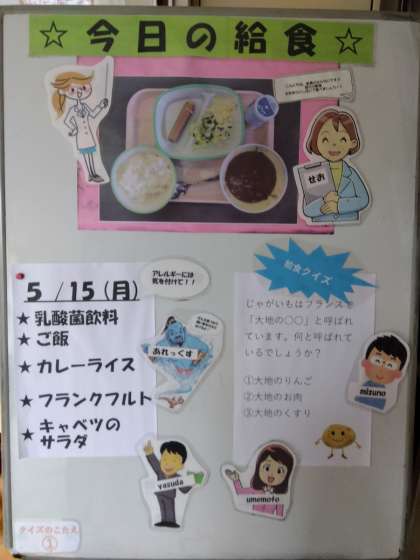 ☆今日の給食☆
せお
アレルギーには
気を付けて!!
5/15(月)
★乳酸菌飲料
★ご飯
★カレーライス
★フランクフルト
★キャベツの
サラダ
あれっくす
給食クイズ
じゃがいもはフランスで
「大地の〇〇」と呼ばれ
ています。何と呼ばれて
いるでしょうか?
①大地のりんご
②大地のお肉
③大地のくすり
mizuno
yasuda
umemoto
クイズのこたえ
①